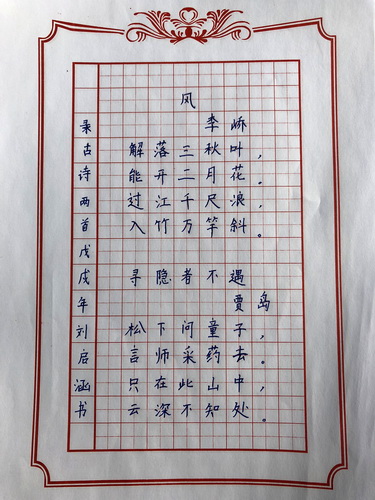 风
李峤
解落三秋叶，
能开二月花。
过江千尺浪，
入竹万竿斜。
寻隐者不遇
贾岛
松下问童子，
言师采药去。
只在此山中，
云深不知处。
录古诗两首戊戌年刘启涵书